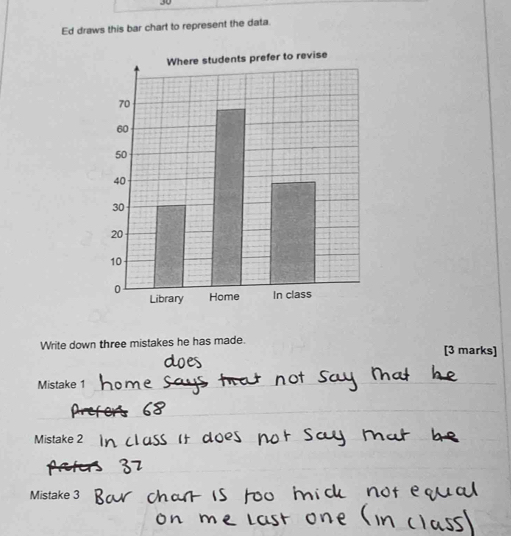 30
Ed draws this bar chart to represent the data.
Where students prefer to revise
70
60
50
40
30
20
10
0
Library Home In class
Write down three mistakes he has made.
[3 marks]
does
Mistake 1 home says that not say that he
prefers 68
Mistake 2 In class it does not say that he
prefers 37
Mistake 3 Bar chart is too thick not equal
on the last one (in class)